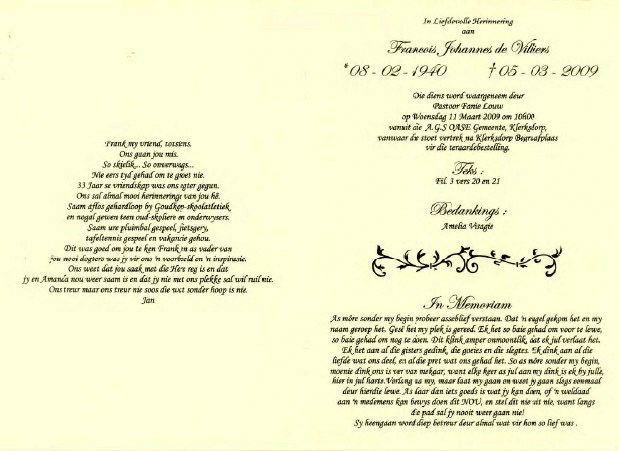 Frank my vriend, totsiens.
Ons gaan jou mis.
So skielik... So onverwags...
Nie eers tyd gehad om te groet nie.
33 Jaar se vriendskap was ons egter gegun.
Ons sal almal mooi herinnerings van jou hê.
Saam atlos gehardloop by Goudkop-skoolatletiek,
en nogal gewen teen oud-skoliere en onderwysers.
Saam ure pluimbal gespeel, fietsgery,
tafeltennis gespeel en vakansie gehou.
Dit was goed om jou te ken Frank en as vader van
jou mooi dogters was jy vir ons 'n voorbeeld en 'n inspirasie.
Ons weet dat jou saak met die Here reg is en dat
jy en Amanda nou weer saam is en dat jy nie met ons plekke sal wil ruil nie.
Ons treur maar ons treur nie soos die wat sonder hoop is nie.
Jan
In Liefdevolle Herinnering
aan
Francois Johannes de Villiers
*08 - 02 - 1940 †05 - 03 - 2009
Die diens word waargeneem deur
Pastoor Fanie Louw
op Woensdag 11 Maart 2009 om 10h00
vanuit die A.G.S OASE Gemeente, Klerksdorp,
vanwaar die stoet vertrek na Klerksdorp Begraafplaas
vir die teraardebestelling.
Teks :
Fil. 3 vers 20 en 21
Bedankings :
Amelia Visagie
In Memoriam
As môre sonder my begin probeer asseblief verstaan. Dat 'n engel gekom het en my
naam geroep het. Gesê het my plek is gereed. Ek het so baie gehad om voor te lewe,
so baie gehad om nog te doen. Dit klink amper onmoontlik, dat ek jul verlaat het.
Ek het aan al die gisters gedink, die goeies en die slegtes. Ek dink aan al die
liefde wat ons deel, en al die pret wat ons gehad het. So as môre sonder my begin,
moenie dink ons is ver van mekaar, want elke keer as jul aan my dink is ek by julle,
hier in jul harte. Verlang na my, maar laat my gaan en weet jy gaan slegs eenmaal
deur hierdie lewe. As daar dan iets goeds is wat jy kan doen, of 'n weldaad
aan 'n medemens kan bewys doen dit NOU, en stel dit nie uit nie, want langs
die pad sal jy nooit weer gaan nie!
Sy heengaan word diep betreur deur almal wat vir hom so lief was .